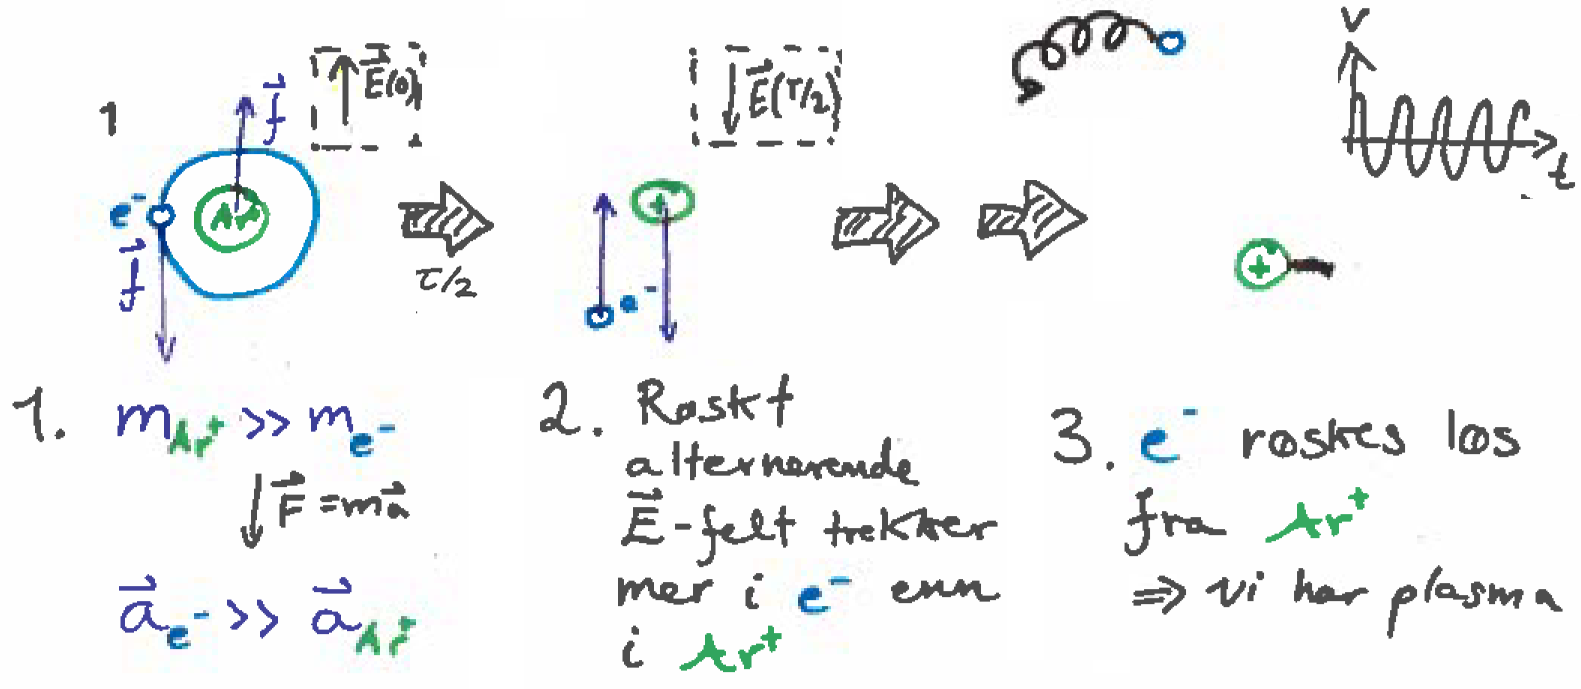 1
f⃗
E⃗(0)
e⁻
Ar⁺
f⃗
τ/2
E⃗(τ/2)
+
e⁻
V
t
+
1. m_Ar⁺ >> m_e⁻
↓ F⃗ = ma⃗
a⃗_e⁻ >> a⃗_Ar⁺
2. Raskt
alternerende
E⃗-felt trekker
mer i e⁻ enn
i Ar⁺
3. e⁻ røskes løs
fra Ar⁺
⇒ vi har plasma